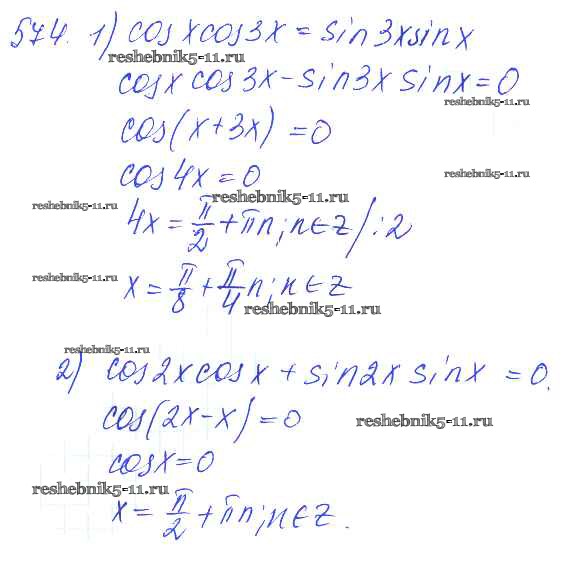 574. 1) cos x cos 3x = sin 3x sin x
reshebnik5-11.ru
cos x cos 3x - sin 3x sin x = 0
reshebnik5-11.ru
cos(x + 3x) = 0
cos 4x = 0
reshebnik5-11.ru
reshebnik5-11.ru
reshebnik5-11.ru
4x = π/2 + πn; n ∈ Z / :2
reshebnik5-11.ru
x = π/8 + π/4 n; n ∈ Z
reshebnik5-11.ru
reshebnik5-11.ru
2) cos 2x cos x + sin 2x sin x = 0.
cos(2x - x) = 0
reshebnik5-11.ru
cos x = 0
reshebnik5-11.ru
x = π/2 + πn; n ∈ Z.